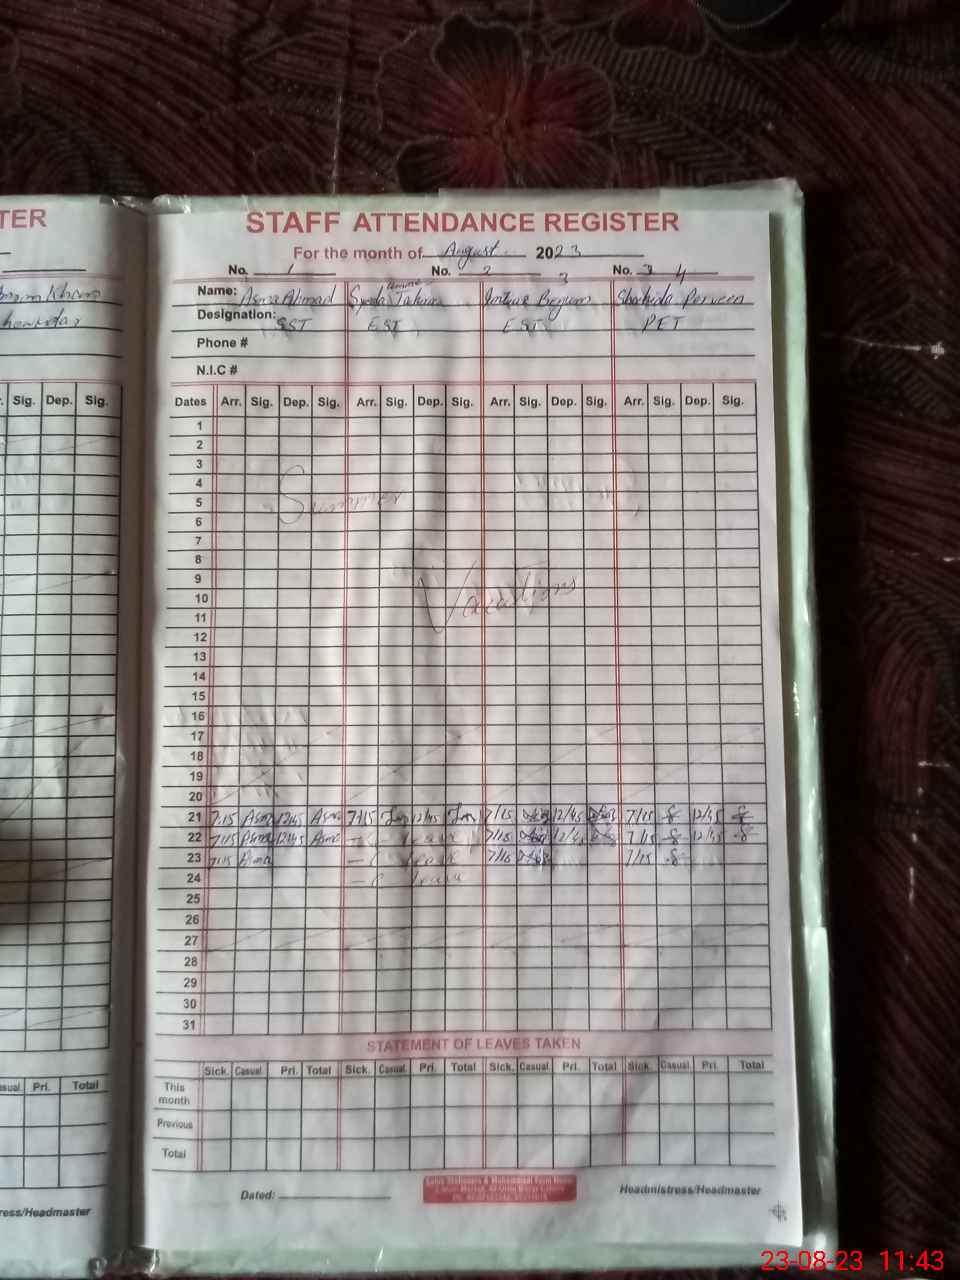 TER
STAFF ATTENDANCE REGISTER
For the month of August 2023
No. 1 No. 2 3 No. 3 4
Khan Name: Asma Ahmad Syeda Tahira Begum Shahida Perveen
Designation: SST EST EST PET
Phone #
N.I.C #
Sig. Dep. Sig. Dates Arr. Sig. Dep. Sig. Arr. Sig. Dep. Sig. Arr. Sig. Dep. Sig. Arr. Sig. Dep. Sig.
1
2
3
4
5 Summer
6
7
8
9
10 Vacations
11
12
13
14
15
16
17
18
19
20
21 7:15 Asma 12/45 Asma 7/15 12/45 7/15 12/45 7/15 12/45
22 7:15 Asma 12/45 Asma - c leave 7/15 12/45 7/15 12/45
23 7:15 Asma - c leave 7/15 7/15
24 - c leave
25
26
27
28
29
30
31
STATEMENT OF LEAVES TAKEN
Sick. Casual Pri. Total Sick. Casual Pri. Total Sick. Casual Pri. Total Sick. Casual Pri. Total
asual Pri. Total This month
Previous
Total
Dated: Headmistress/Headmaster
ress/Headmaster
23-08-23 11:43